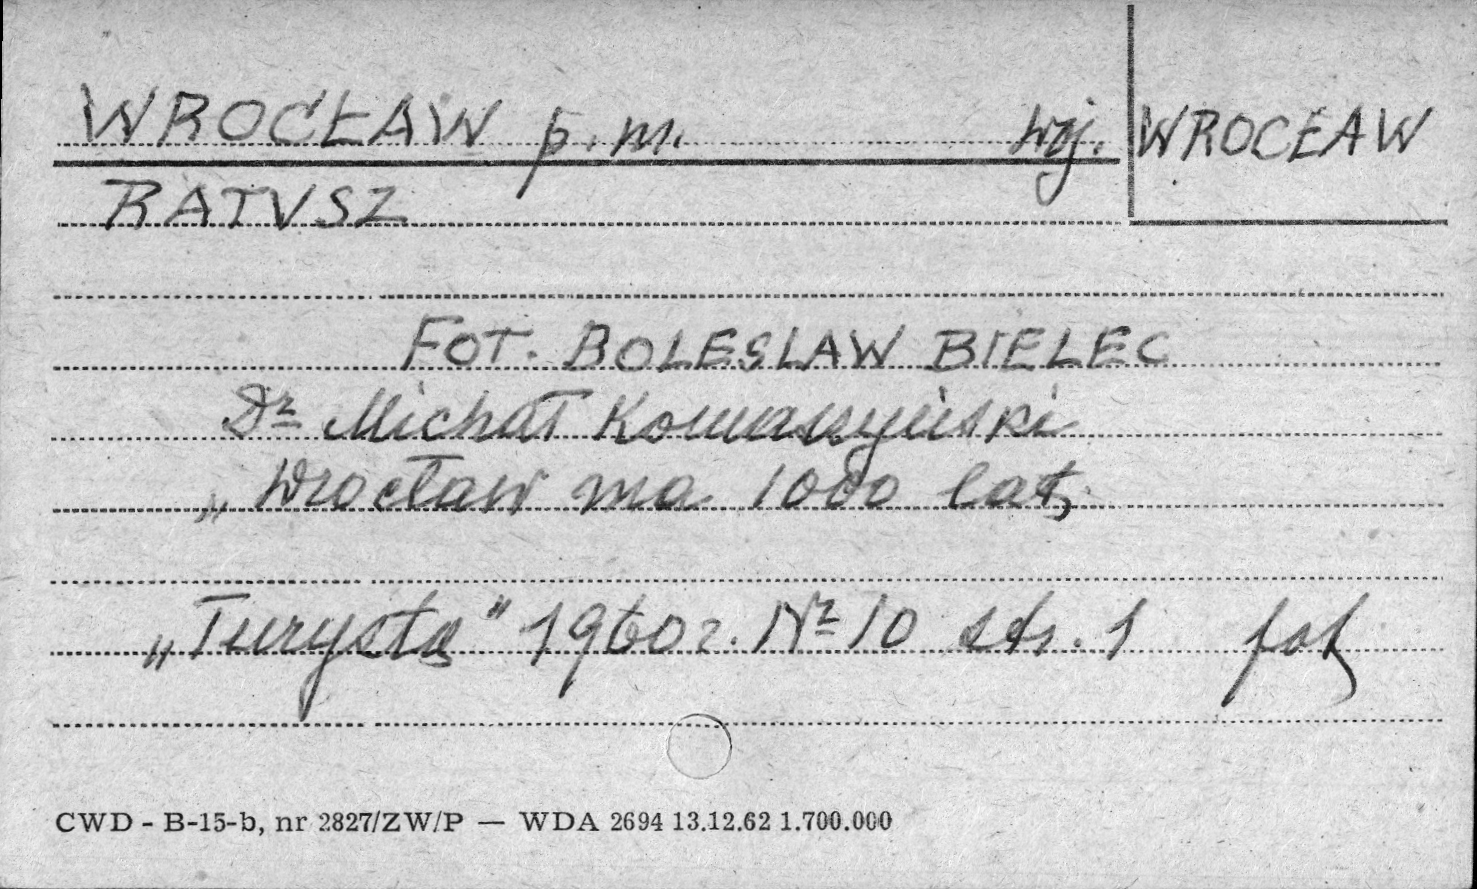 WROCŁAW p.m. woj. WROCŁAW
RATUSZ
FOT. BOLESLAW BIELEC
Dr Michał
„Wrocław ma 1000 lat
„Turysta" 1960 r. Nr 10 str. 1 fot
CWD - B-15-b, nr 2827/ZW/P — WDA 2694 13.12.62 1.700.000